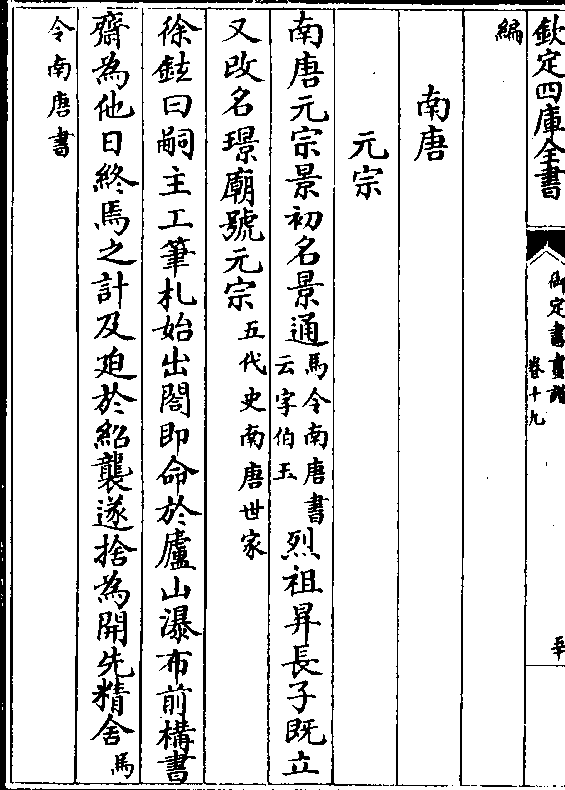 欽定四庫全書
御定書畫譜
卷十九
編
南唐
元宗
南唐元宗景初名景通馬令南唐書云字伯玉烈祖昇長子既立
又改名璟廟號元宗五代史南唐世家
徐鉉曰嗣主工筆札始出閤即命於廬山瀑布前構書
齋為他日終焉之計及廹於紹襲遂捨為開先精舍馬
令南唐書